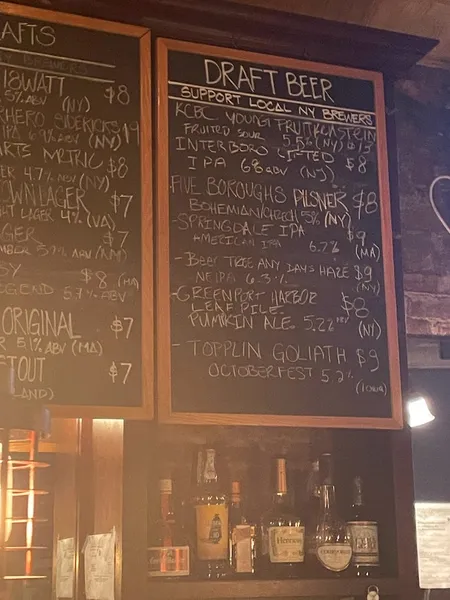 AFTS
Y BREWERS
18WATT $8
5% ABV (NY)
RHERO SIDEKICKS 19
IPA 6.9% ABV (NY)
ARTS METRIC $8
ER 4.7% ABV (NY)
OWN LAGER $7
HT LAGER 4% (VA)
GER $7
MBER 5.7% ABV (NY)
SY $8 (MA)
EGEND 5.7% ABV
ORIGINAL $7
R 5.1% ABV (MA)
TOUT $7
LAND)
DRAFT BEER
SUPPORT LOCAL NY BREWERS
KCBC YOUNG FRUITKENSTEIN
FRUITED SOUR 5.5% (NY) $13
INTERBORO LIFTED $8
IPA 6.8 ABV (NJ)
FIVE BOROUGHS PILSNER $8
BOHEMIAN/CZECH 5% (NY)
-SPRINGDALE IPA $9
AMERICAN IPA 6.7% (MA)
-BEER TREE ANY DAYS HAZE $9
NE IPA 6.3% (NY)
-GREENPORT HARBOR $8
LEAF PILE
PUMPKIN ALE. 5.2% ABV (NY)
- TOPPLIN GOLIATH $9
OCTOBERFEST 5.2%
(IOWA)
Hennessy